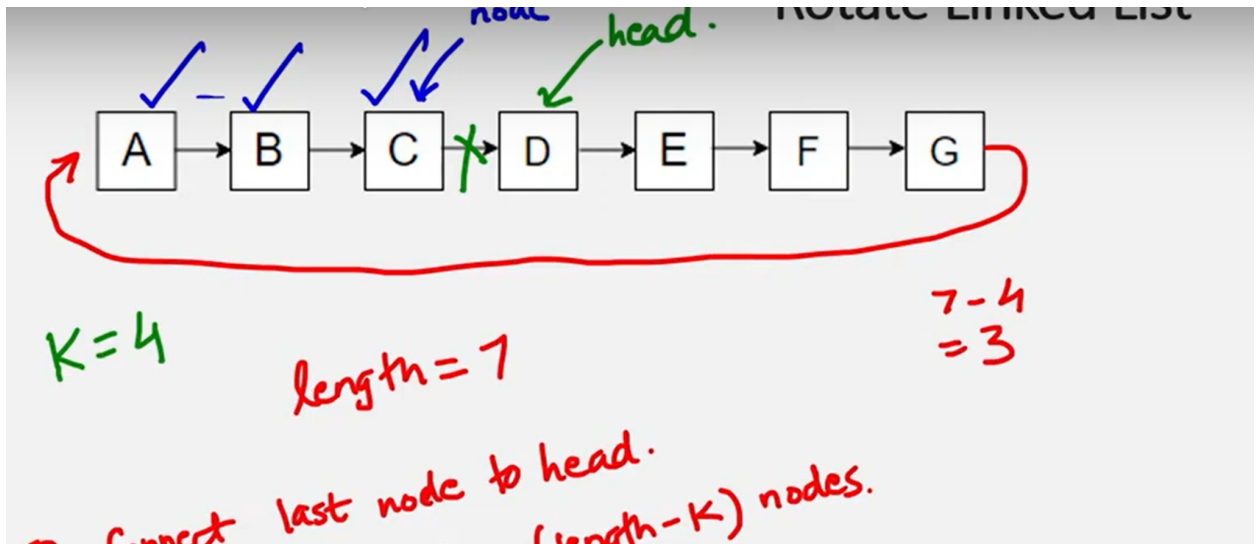 node Rotate Linked List
head.
A B C D E F G
7-4
=3
K=4
length=7
Connect last node to head.
(length-K) nodes.